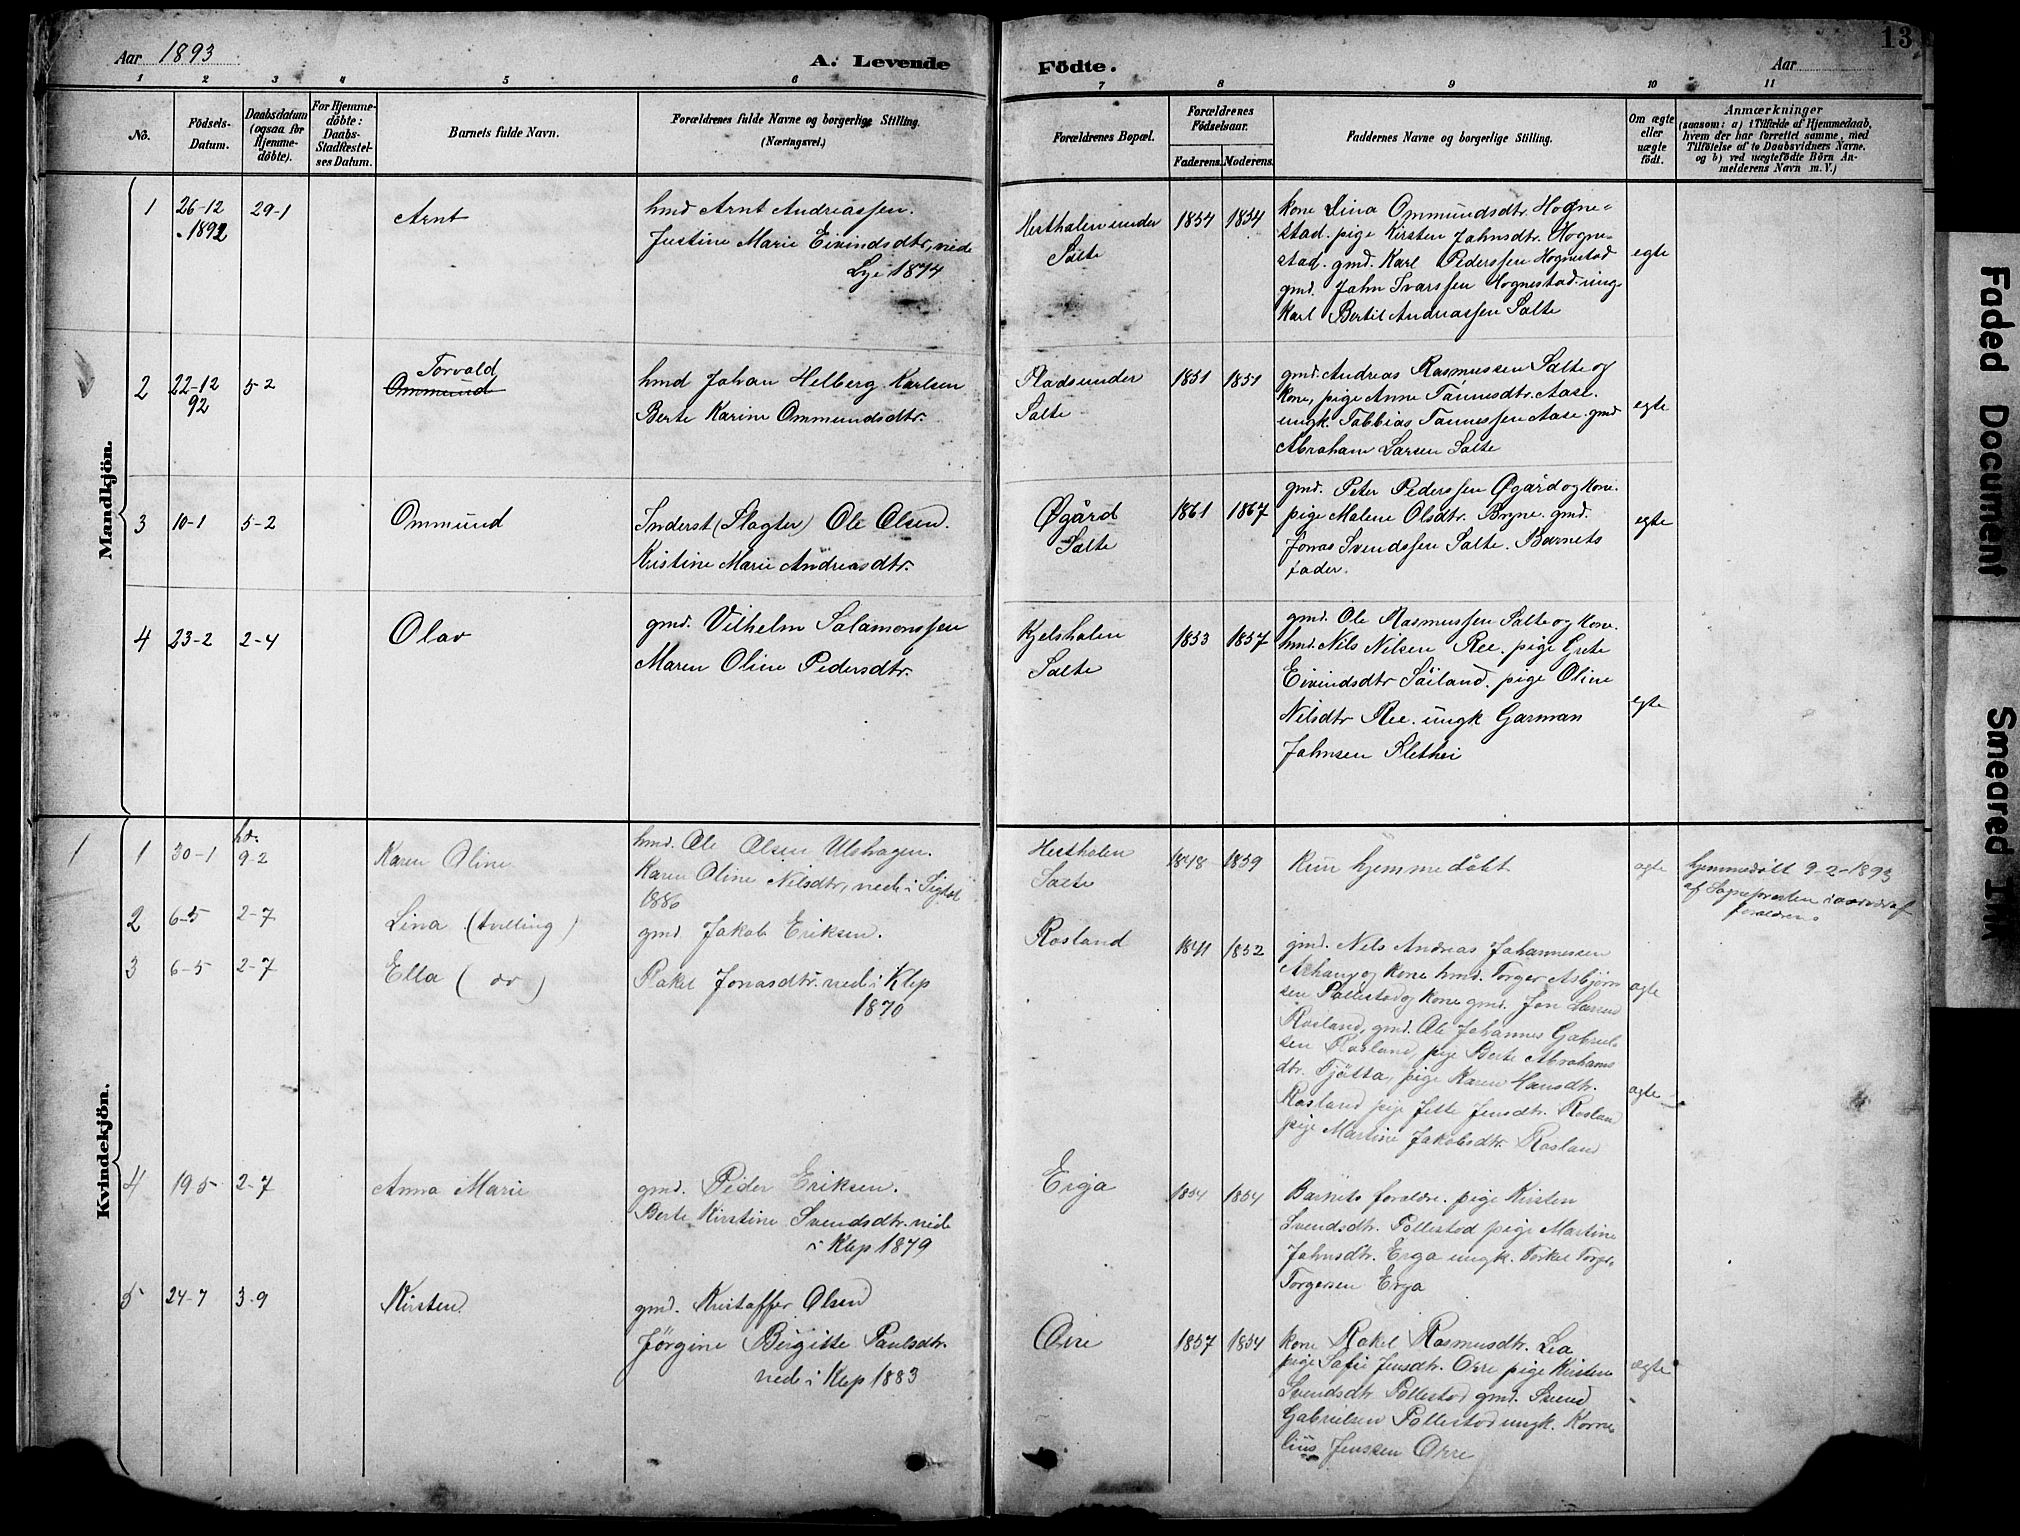 Aar 1893
A. Levende
Födte.
Aar
13
1 2 3 4 5 6 7 8 9 10 11
No.
Födsels-
Datum.
Daabsdatum
(ogsaa for
Hjemme-
döbte).
For Hjemme-
döbte:
Daabs-
Stadfæstel-
ses Datum.
Barnets fulde Navn.
Forældrenes fulde Navne og borgerlige Stilling.
(Næringsvei.)
Forældrenes Bopæl.
Forældrenes
Födselsaar.
Faderens. Moderens.
Faddernes Navne og borgerlige Stilling.
Om ægte
eller
uægte
födt.
Anmærkninger
(saasom: a) i Tilfælde af Hjemmedaab,
hvem der har forrettet samme, med
Tilföielse af to Daabsvidners Navne,
og b) ved uægtefödte Börn An-
melderens Navn m. V.)
Mandkjön.
1 26-12 1892 29-1 Arnt
hmd Arnt Andreassen.
Justine Marie Eivindsdtr, nede
Lye 1874
Hesthalen under
Salte
1854 1854
kone Lina Ommundsdtr. Hogne-
stad. pige Kirsten Jahnsdtr. Hogne-
stad. gmd. Karl Pederssen Hognestad
gmd. Jahn Ivarssen Hognestad. ung-
karl Bertil Andreassen Salte
egte
2 22-12 92 5-2 Torvald
Ommund
hmd Johan Helberg Karlsen
Berte Karine Ommundsdtr.
Pladsunder
Salte
1851 1851
gmd. Andreas Rasmussen Salte og
kone, pige Anne Tönnesdtr. Aase.
ungk. Tobbias Tönnessen Aase. gmd
Abraham Larsen Salte
egte
3 10-1 5-2 Ommund
Inderst (Slagter) Ole Olsen.
Kristine Marie Andreasdtr.
Øgård
Salte
1861 1867
gmd. Peter Pederssen Øgård og kone.
pige Malene Olsdtr. Bryne. gmd.
Jonas Svendssen Salte. Barnets
fader.
egte
4 23-2 2-4 Olav
gmd. Vilhelm Salamonssen
Maren Oline Pedersdtr.
Kjelshalen
Salte
1853 1857
gmd. Ole Rasmussen Salte og kone.
hmd. Nils Nilsen Ree. pige Grete
Eivindsdtr Söiland. pige Oline
Nilsdtr Ree. ungk Garman
Jahnsen Slethei
egte
Kvindekjön.
1 1 30-1 hd. 9-2 Karen Oline
hmd. Ole Olsen Ulshagen.
Karen Oline Nilsdtr, nede i
1886
Hesthalen
Salte
1848 1859
Kun hjemmedöbt
ægte
hjemmedöbt 9-2-1893
af Sognepresten i
forældrene
2 6-5 2-7 Lina (tvilling)
gmd. Jakob Eriksen.
3 6-5 2-7 Ella (do)
Rakel Jonasdtr. nede i Klep
1870
Rosland
1841 1852
gmd. Nils Andreas Johannessen
og kone hmd. Torger Asbjörn
sen Pollestad og kone gmd. Jon Larsen
Rosland, gmd. Ole Johannes Gabriel-
sen Rosland, pige Berte Abrahams
dtr. Tjötta, pige Karen Hansdtr.
Rosland pige Jette Jensdtr. Roslan
pige Martine Jakobsdtr. Roslan
ægte
ægte
4 19-5 2-7 Anna Marie
gmd. Peder Eriksen.
Berte Kirstine Svendsdtr. nede
i Klep 1879
Erga
1854 1854
Barnets forældre. pige Kirsten
Svendsdtr. Pollestad pige Martine
Jahnsdtr. Erga ungk. Torkel Torge-
Torgersen Erga
5 24-7 3-9 Kirsten.
gmd. Kristoffer Olsen
Jörgine Birgitte Paulsdtr.
nede i Klep 1883
Orre
1857 1854
kone Rakel Rasmusdtr. Lea
pige Sofie Jensdtr. Orre pige Kirsten
Svendsdtr. Pollestad gmd. Svend
Gabrielsen Pollestad ungk. Korne-
lius Jenssen Orre
ægte
Faded Document
Smeared Ink